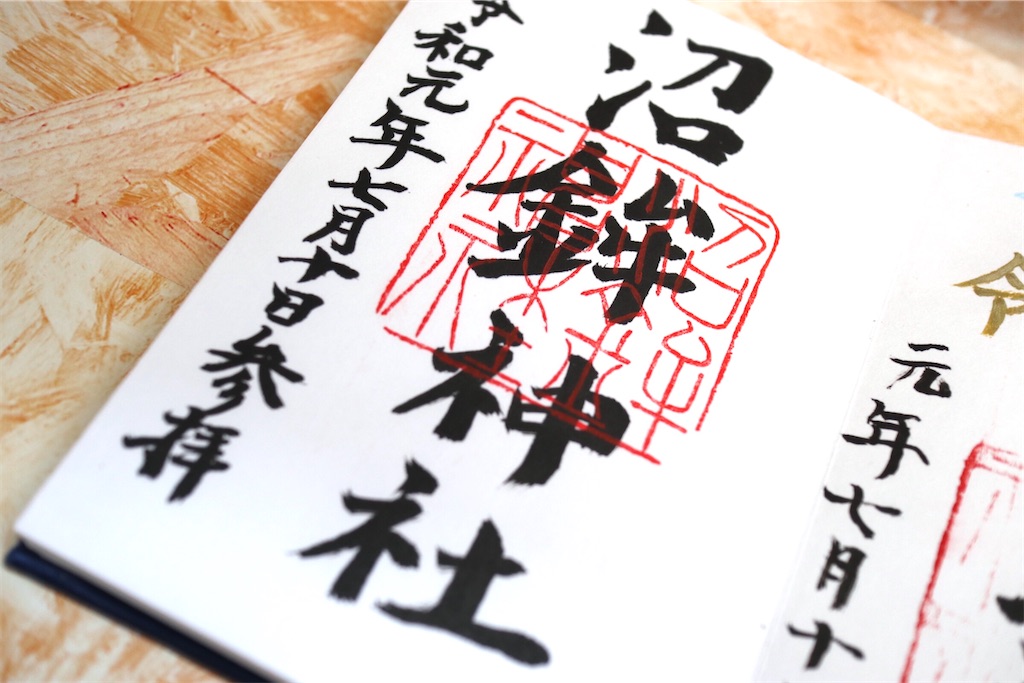 令
元年七月十
沼鉾神社
令和元年七月十日参拝